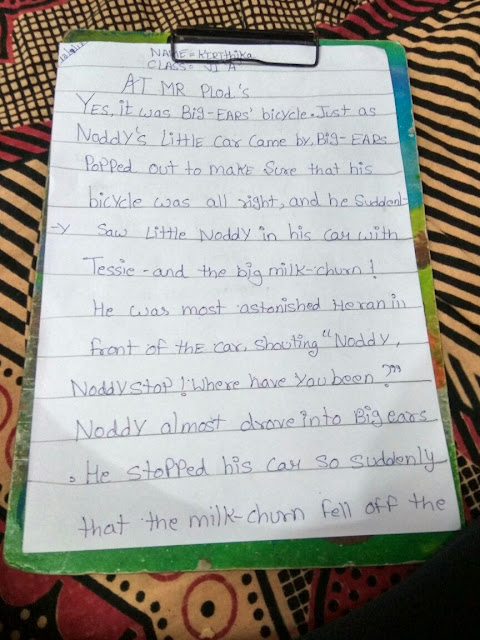 NAME = KIRTHika
CLASS = VI 'A'
AT MR PLOD'S
YES, it was Big-EARS' bicycle. Just as
Noddy's Little Car Came by, Big-EARs
Popped out to make Sure that his
bicycle was all right, and he Suddenl-
-y Saw Little Noddy in his Car with
Tessie - and the big milk-churn!
He was most astonished He ran in
front of the car, Shouting "Noddy,
Noddy Stop! Where have You been?"
Noddy almost drove into Big ears
. He Stopped his Car So Suddenly
that the milk-churn fell off the